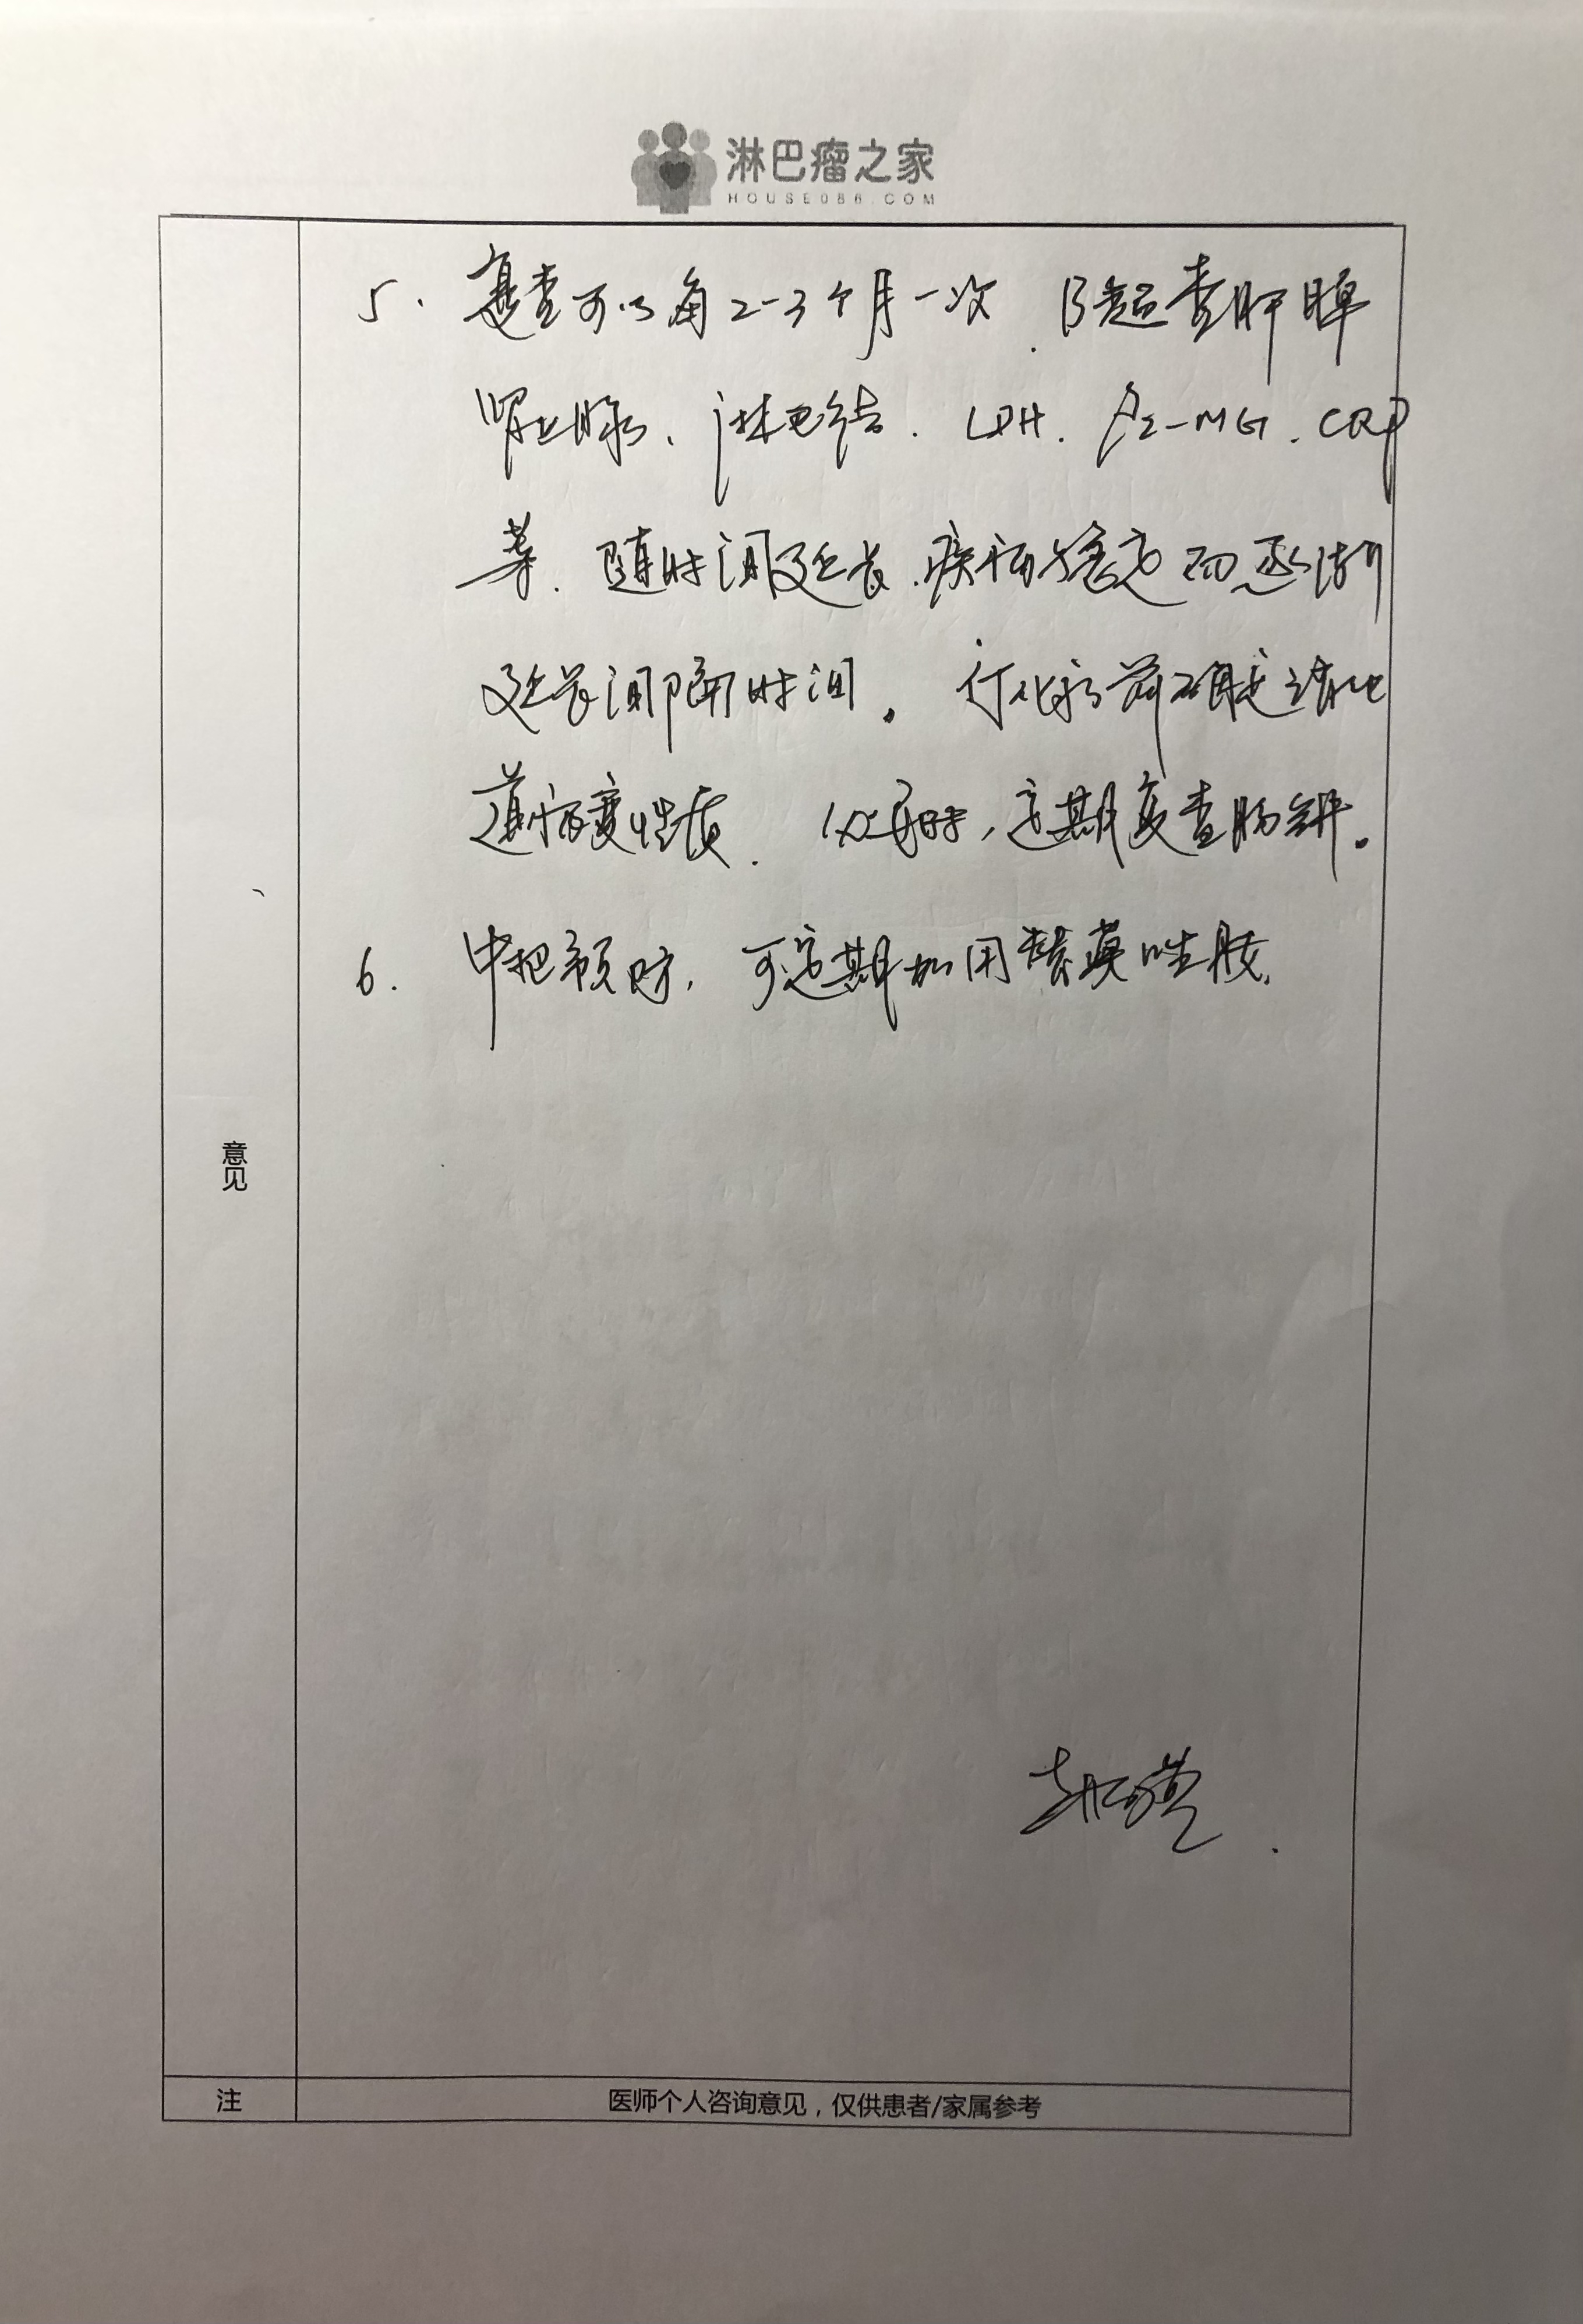 淋巴瘤之家
HOUSE086.COM
5. 复查可以每2-3个月一次. B超查肝脾
肾上腺、淋巴结. LDH. β2-MG. CRP
等. 随时间延长.疾病稳定而逐渐
延长间隔时间。 行化疗前确定消化
道病变性质. 必要时,定期复查肠镜。
6. 中枢预防, 可定期加用替莫唑胺.
意见
注
医师个人咨询意见，仅供患者/家属参考